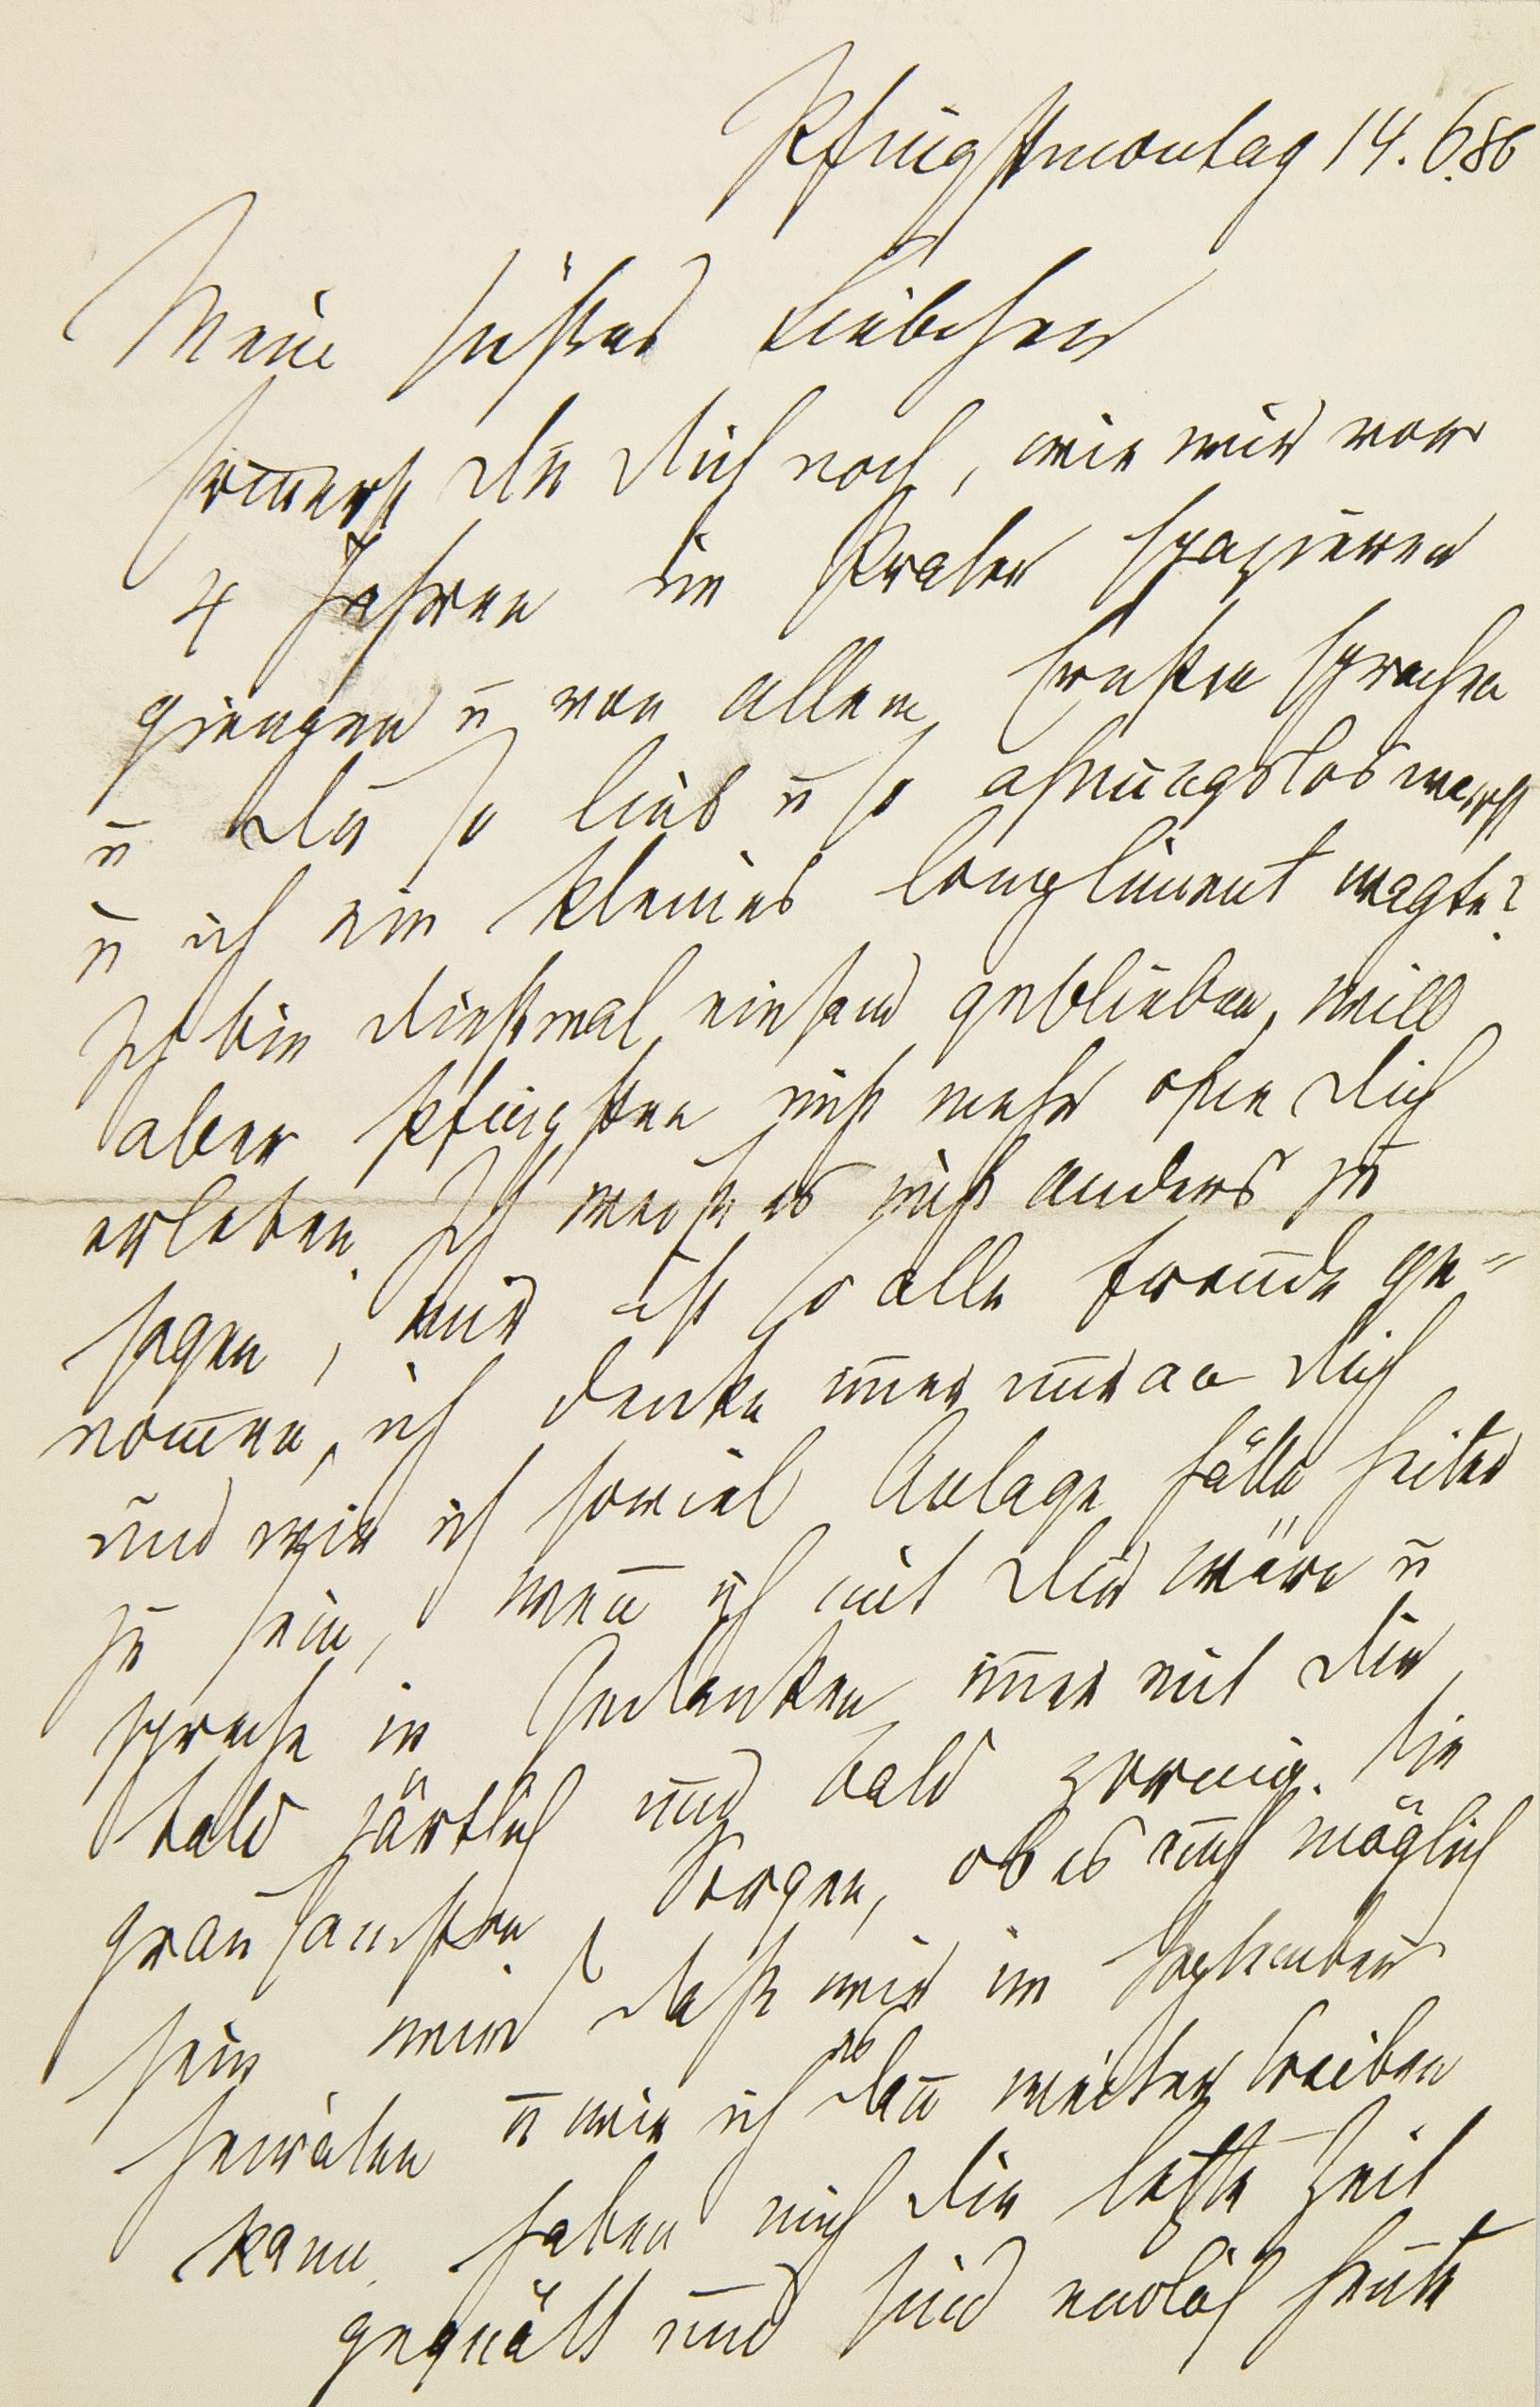 Pfingstmontag 14. 6. 86
Mein süßes Liebchen
Erinnerst Du Dich noch, wie wir vor
4 Jahren im Prater spazieren
giengen u von allem Ersten sprachen
u Du so lieb u so ahnungslos warst
u ich ein kleines Compliment wagte?
Ich bin dießmal einsam geblieben, will
aber Pfingsten nicht mehr ohne Dich
erleben. Ich weiß es nicht anders zu
sagen, mir ist so alle Freude ge=
nom̅en, ich denke im̅er nur an Dich
und wie ich soviel Anlage hätte heiter
zu sein, wen̅ ich mit Dir wäre u
spreche in Gedanken im̅er mit Dir,
bald zärtlich und bald zornig. Die
grausamsten Sorgen, ob es auch möglich
sein wird daß wir im September
heiraten u wie ich es dan̅ weiter treiben
kann, haben mich die letzte Zeit
gequält und sind endlich heute